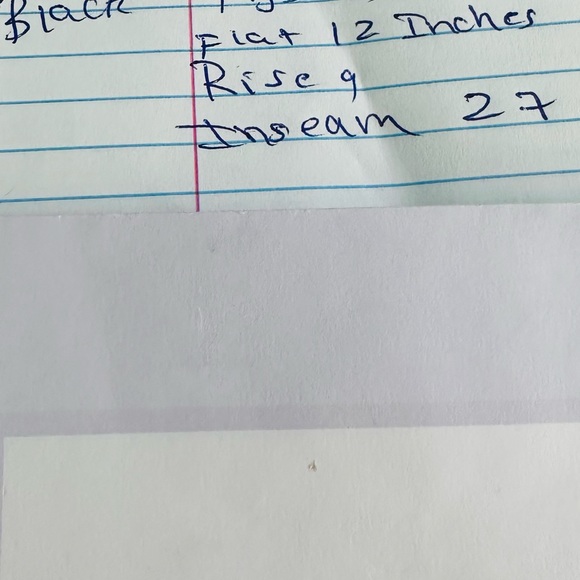 Black
Flat 12 Inches
Rise 9
Inseam 27